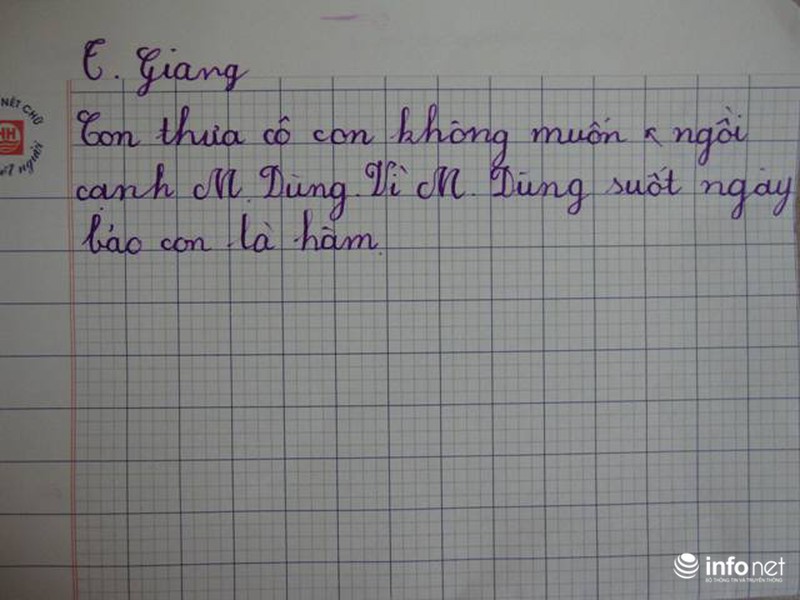 T. Giang
NÉT CHỮ
HH
nết người
Con thưa cô con không muốn ngồi
cạnh M. Dũng. Vì M. Dũng suốt ngày
bảo con là hâm.
infonet
BỘ THÔNG TIN VÀ TRUYỀN THÔNG